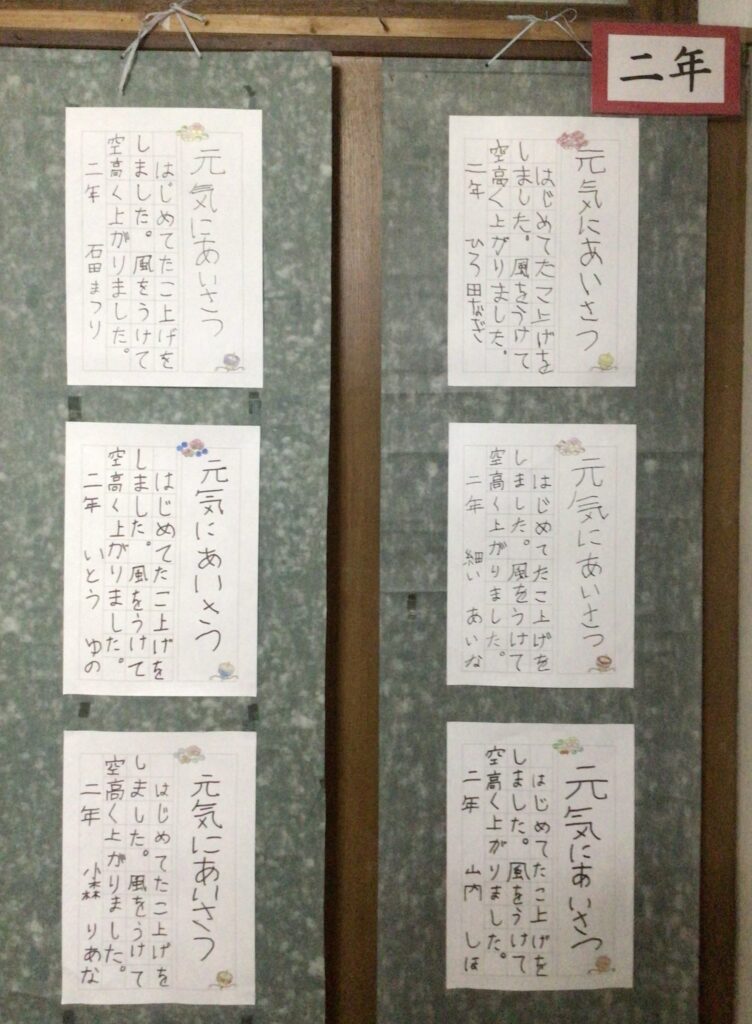 二年
元気にあいさつ
はじめてたこ上げを
しました。風をうけて
空高く上がりました。
二年 ひろ田なぎさ
元気にあいさつ
はじめてたこ上げを
しました。風をうけて
空高く上がりました。
二年 細い あいな
元気にあいさつ
はじめてたこ上げを
しました。風をうけて
空高く上がりました。
二年 山内 しほ
元気にあいさつ
はじめてたこ上げを
しました。風をうけて
空高く上がりました。
二年 石田まつり
元気にあいさつ
はじめてたこ上げを
しました。風をうけて
空高く上がりました。
二年 いとう ゆの
元気にあいさつ
はじめてたこ上げを
しました。風をうけて
空高く上がりました。
二年 小森 りあな